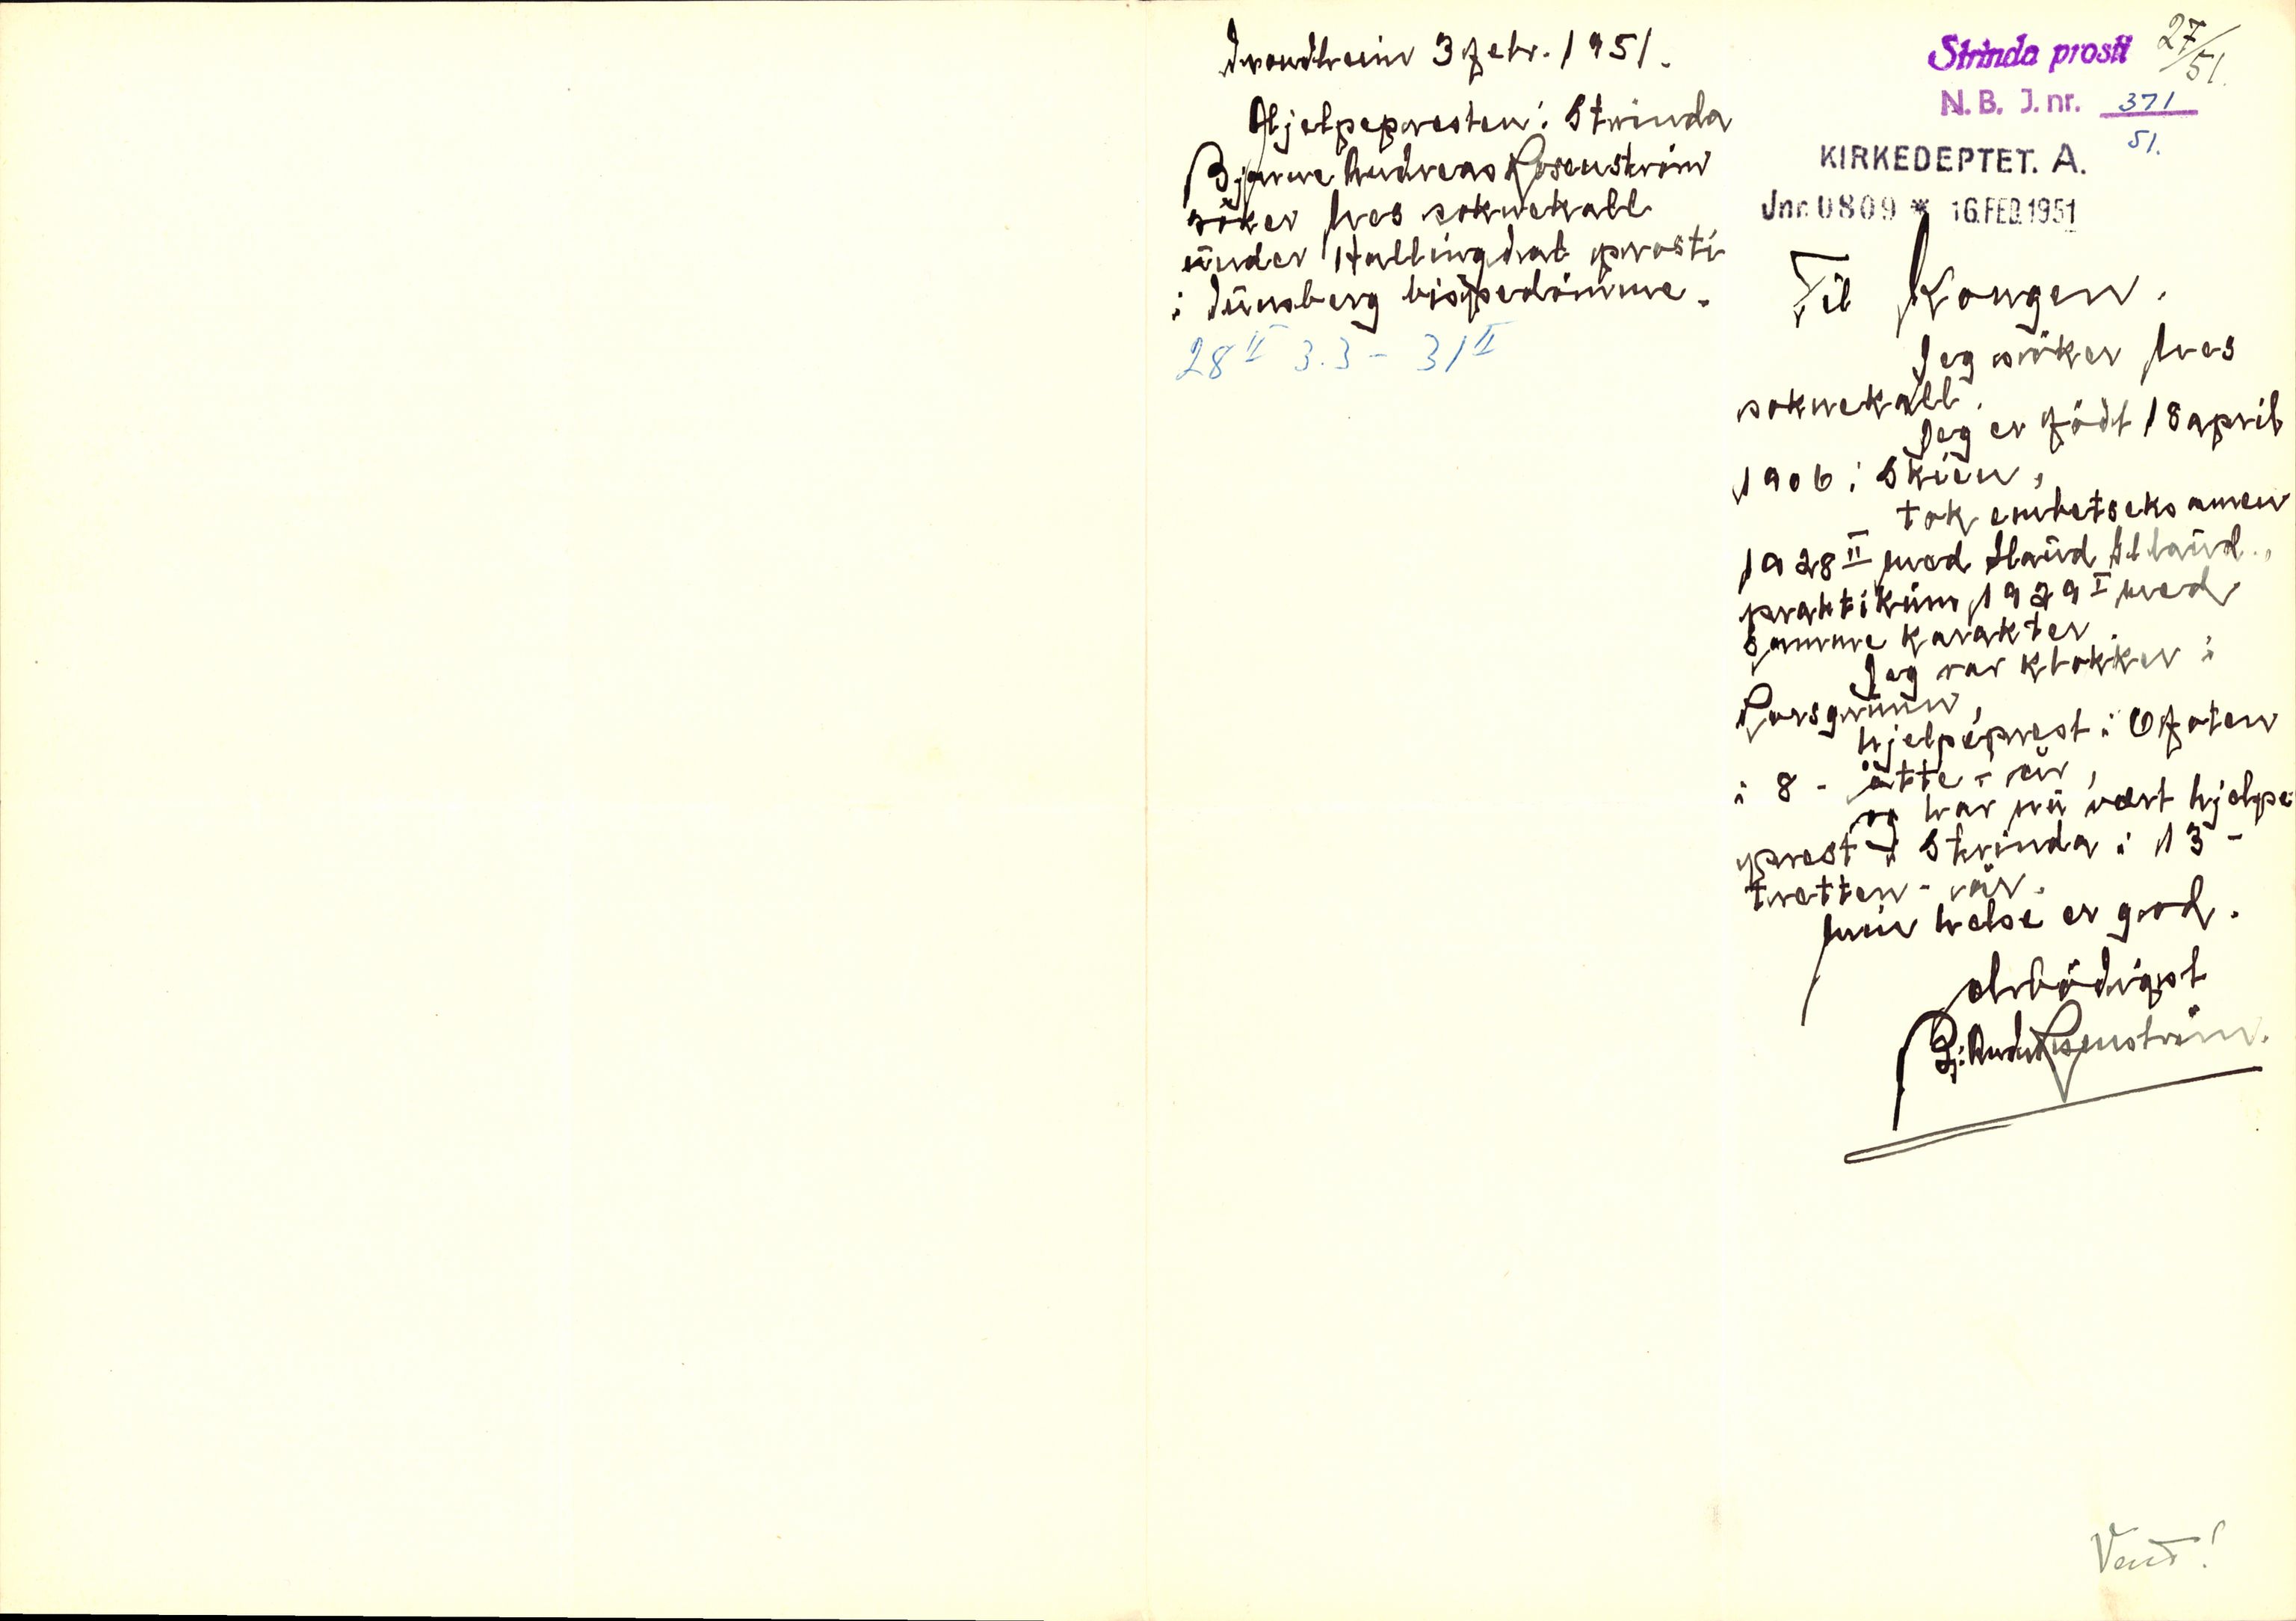 Trondheim 3 febr. 1951.
Hjelpepresten i Strinda
Bjarne Andreas Rosenström
söker Nes soknekall
under Hallingdal prosti
i Tunsberg bispedömme.
28 II 3.3 - 31 II
Strinda prosti 27/51.
N. B. J. nr. 371
51.
KIRKEDEPTET. A.
Jnr. 0809 * 16. FEB. 1951
Til Kongen.
Jeg söker Nes
soknekall.
Jeg er födt 18 april
1906 i Skien,
tok embetseksamen
1928 II med Haud
praktikum 1929 I med
samme karakter.
Jeg var klokker i
Porsgrunn,
hjelpeprest i Ofoten
i 8 - åtte - år,
og har nu vært hjelpe
prest i Strinda i 13 -
tretten - år.
Min helse er god.
ærbödigst
Bj. Andr. Rosenström.
Vend!